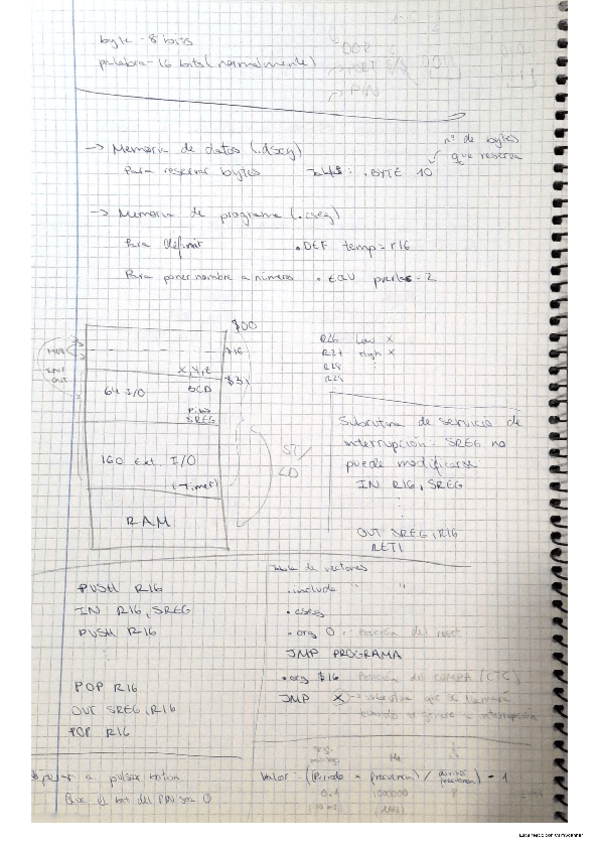 byte - 8 bits
palabra - 16 bits (normalmente)
→ Memoria de datos (.dseg)
nº de bytes
que reserva
Para reservar bytes
: .BYTE 10
→ Memoria de programa (.cseg)
Para definir .DEF temp = r16
Para poner nombre a números .EQU = 2
$00
$16
X, Y, Z
$31
64 I/O
SREG
OUT
160 Ext. I/O
(Timer)
ST/
LD
RAM
R26 Low X
R27 High X
R28
R29
Subrutina de servicio de
interrupción: SREG no
puede modificarse
IN R16, SREG
⋮
OUT SREG, R16
RETI
PUSH R16
IN R16, SREG
PUSH R16
⋮
POP R16
OUT SREG, R16
POP R16
Tabla de vectores
.include " "
.cseg
.org 0 Posición del reset
JMP PROGRAMA
.org $16 Posición del COMPA (CTC)
JMP X → subrutina que se llamará
cuando se genere la interrupción
Esperar a pulsar botón
Que el bit del PIN sea 0
Hz
Valor: (Periodo * frecuencia) / - 1
0.1 1000000 8